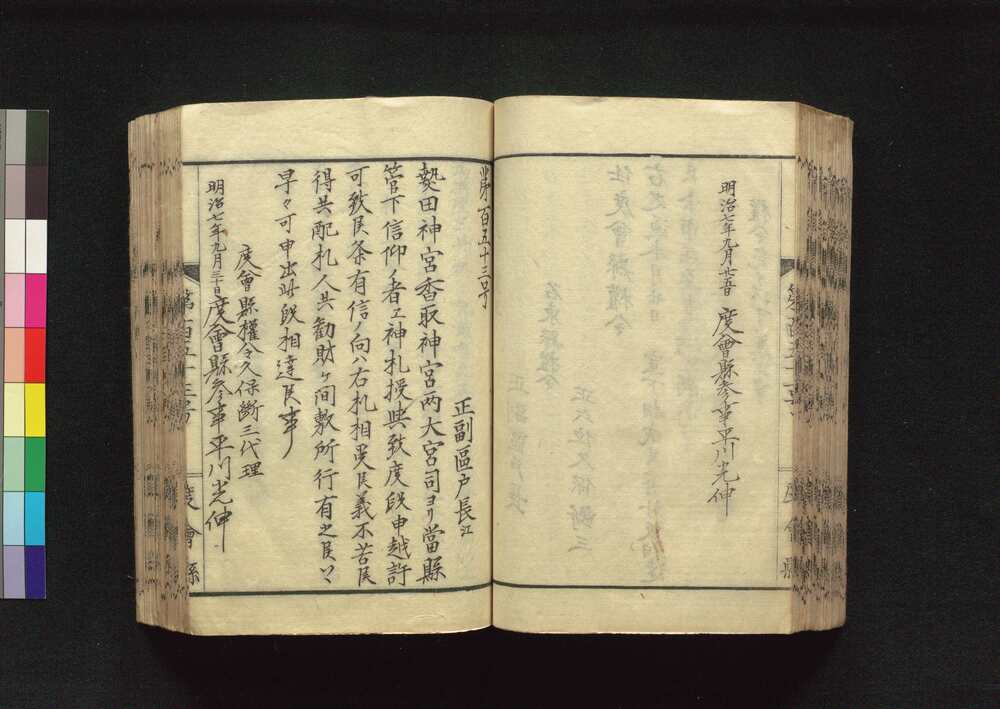 明治七年九月廿五日 度會縣参事平川光伸
第百五十三号
正副區戸長江
熱田神宮香取神宮两大宮司ヨリ當縣
管下信仰ノ者エ神札授与致度段申越許
可致候条有信ノ向ハ右札相受候義不苦候
得共配札人共勧財ケ間敷所行有之候ハヽ
早々可申出此段相達候事
度會縣權令久保断三代理
明治七年九月三十日度會縣参事平川光伸
第百五十三号
度會縣